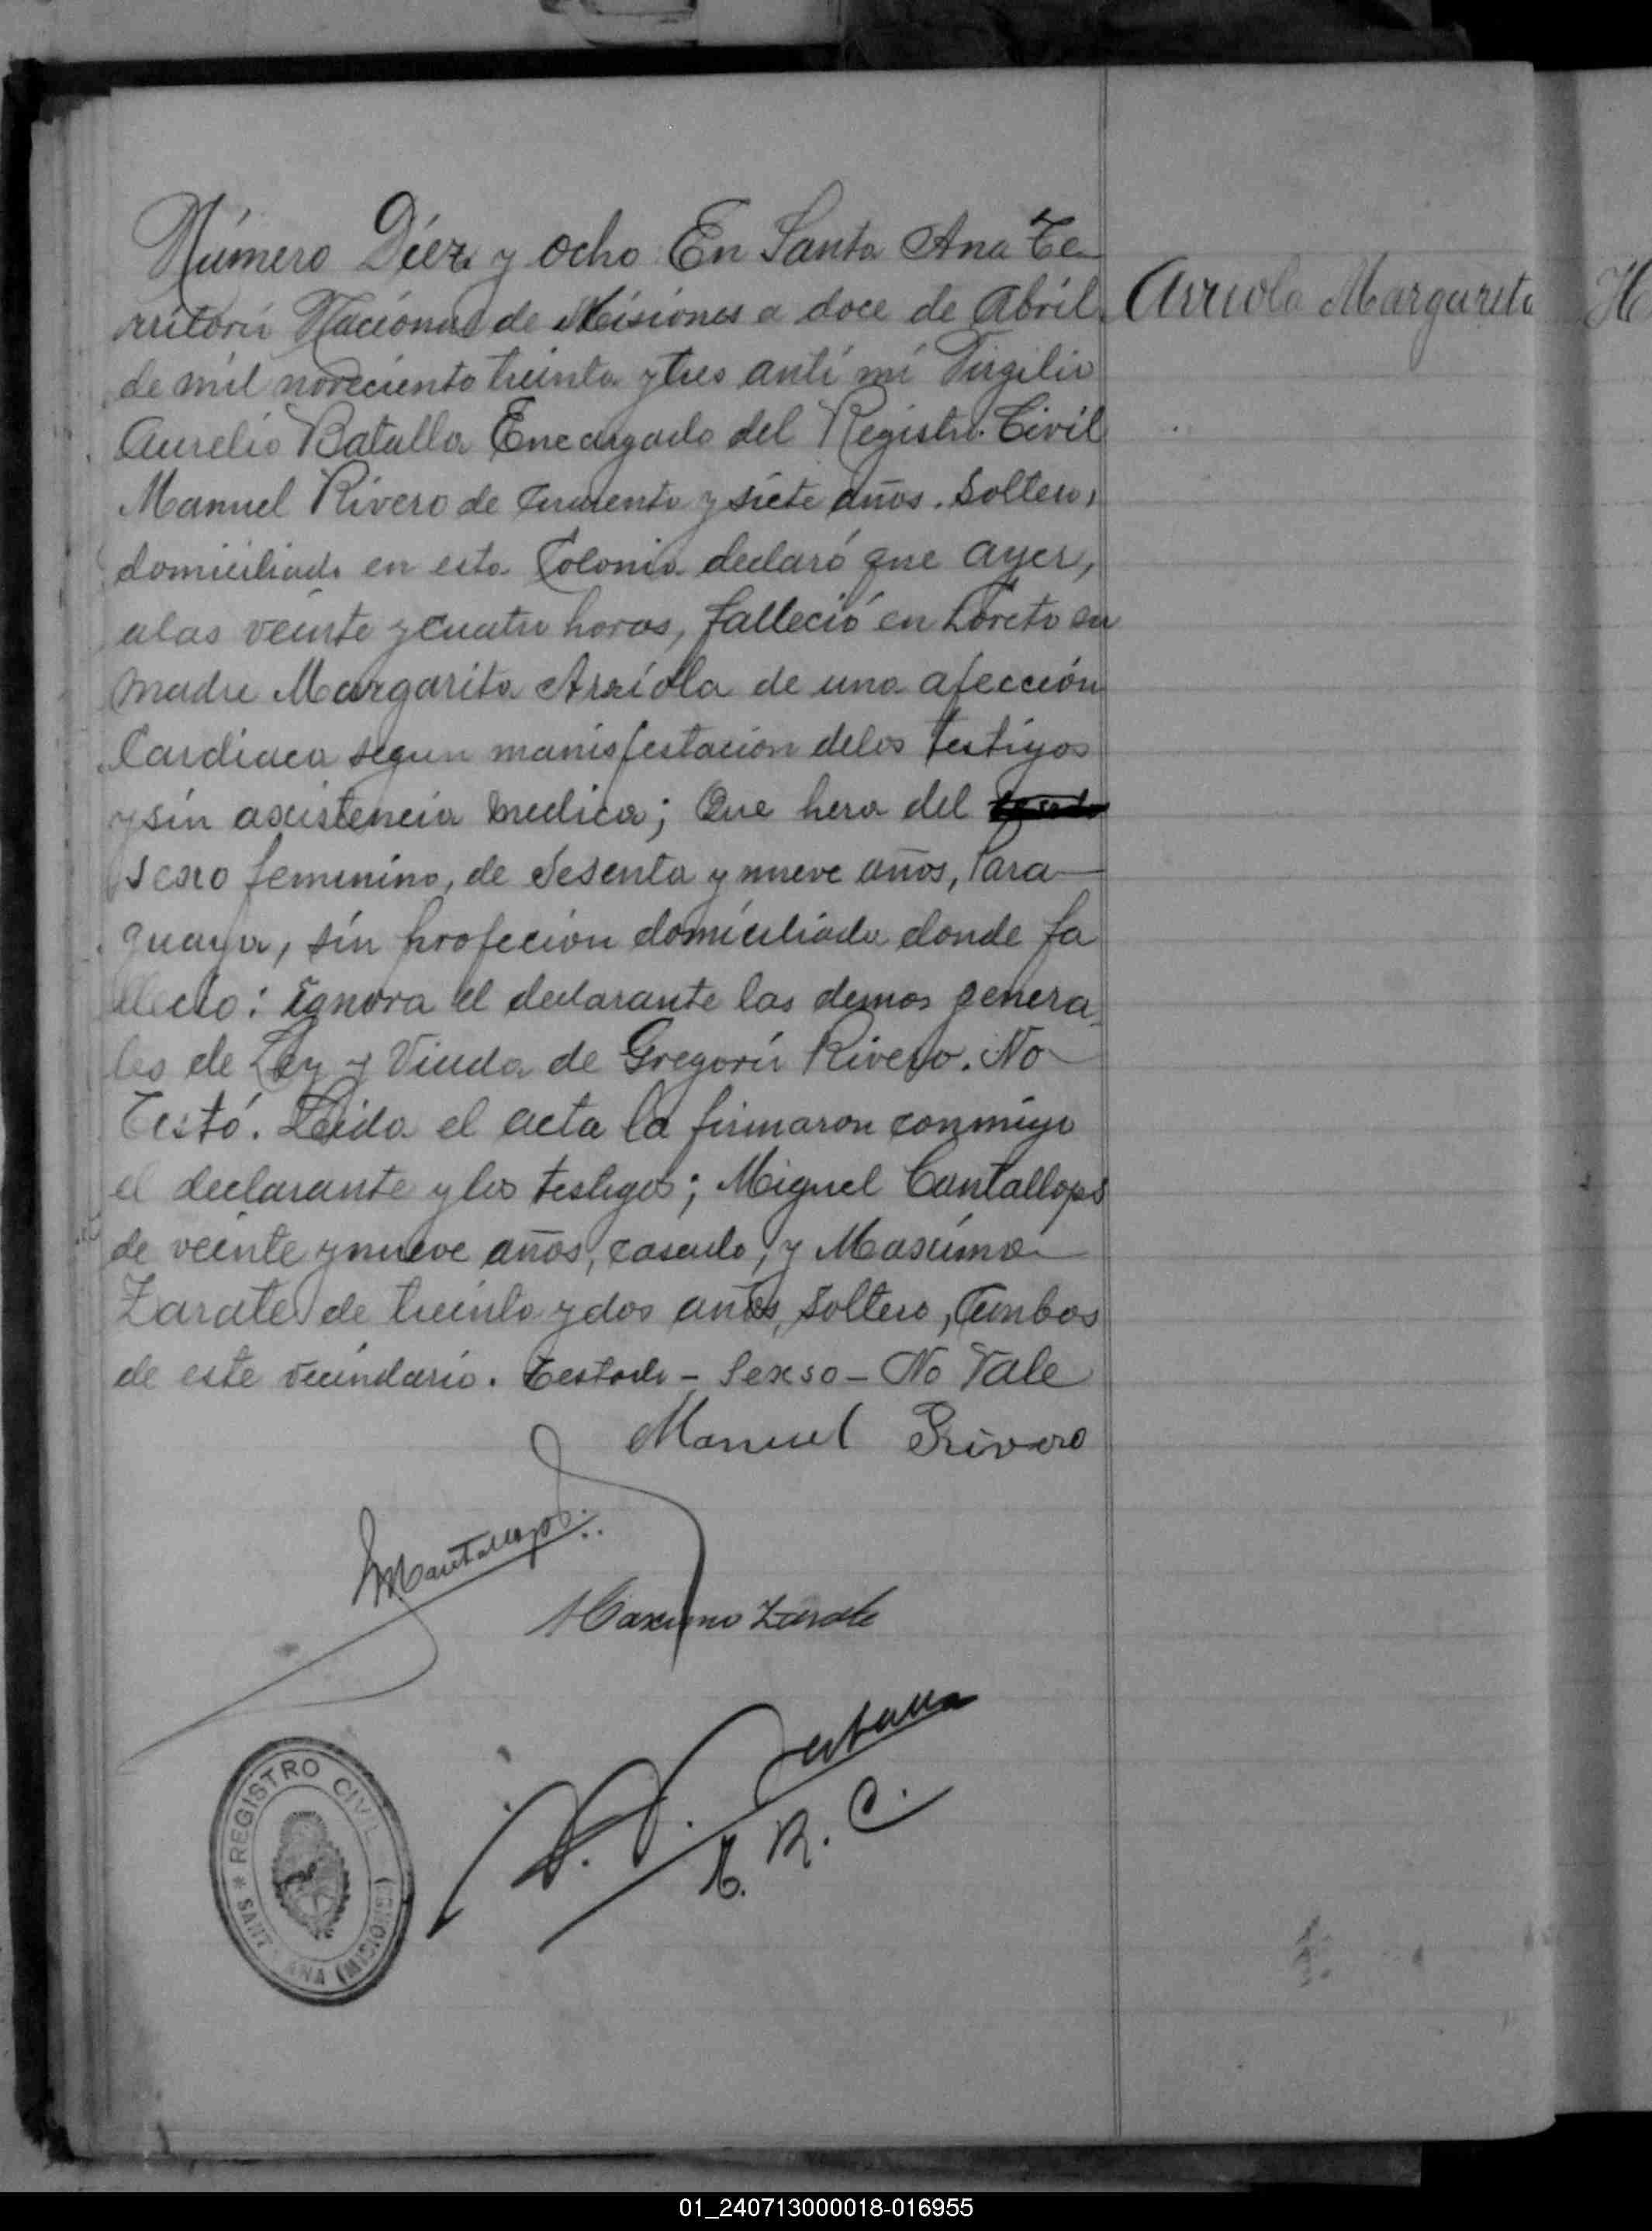 Número Diez y ocho En Santa Ana Te-
rritorio Nacional de Misiones a doce de Abril
de mil noveciento treinta y tres anti mi Virgilio
Aurelio Batalla Encargado del Registro Civil
Manuel Rivero de cuarenta y siete años. Soltero,
domiciliado en esta Colonia declaró que ayer,
alas veinte y cuatro horas, falleció en Loreto su
madre Margarita Arriola de una afección
Cardiaca segun manisfestacion delos testigos
y sin axistencia medica; Que hera del
sexo femenino, de Sesenta y nueve años, Para-
guaya, sin profecion domiciliada donde fa
llecio: ignora el declarante las demas genera-
les de Ley y Viuda de Gregorio Rivero. No
Testó. Leida el acta la firmaron conmigo
el declarante y los testigos; Miguel Cantallops
de veinte y nueve años, casado, y Maximo
Zarate de treinta y dos años, Soltero, Ambos
de este vecindario. Testado - Sexso - No Vale
Arriola Margarita
Manuel Rivero
MCantallops
Maximo Zarate
V. A. Batalla
E. R. C.
REGISTRO CIVIL
SANTA ANA (MISIONES)
01_240713000018-016955